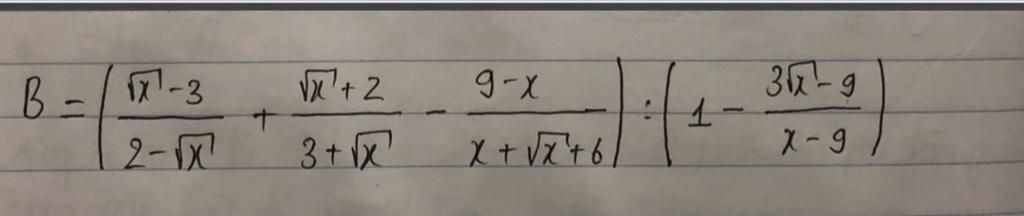 B = ( (√x - 3)/(2 - √x) + (√x + 2)/(3 + √x) - (9 - x)/(x + √x + 6) ) : ( 1 - (3√x - 9)/(x - 9) )